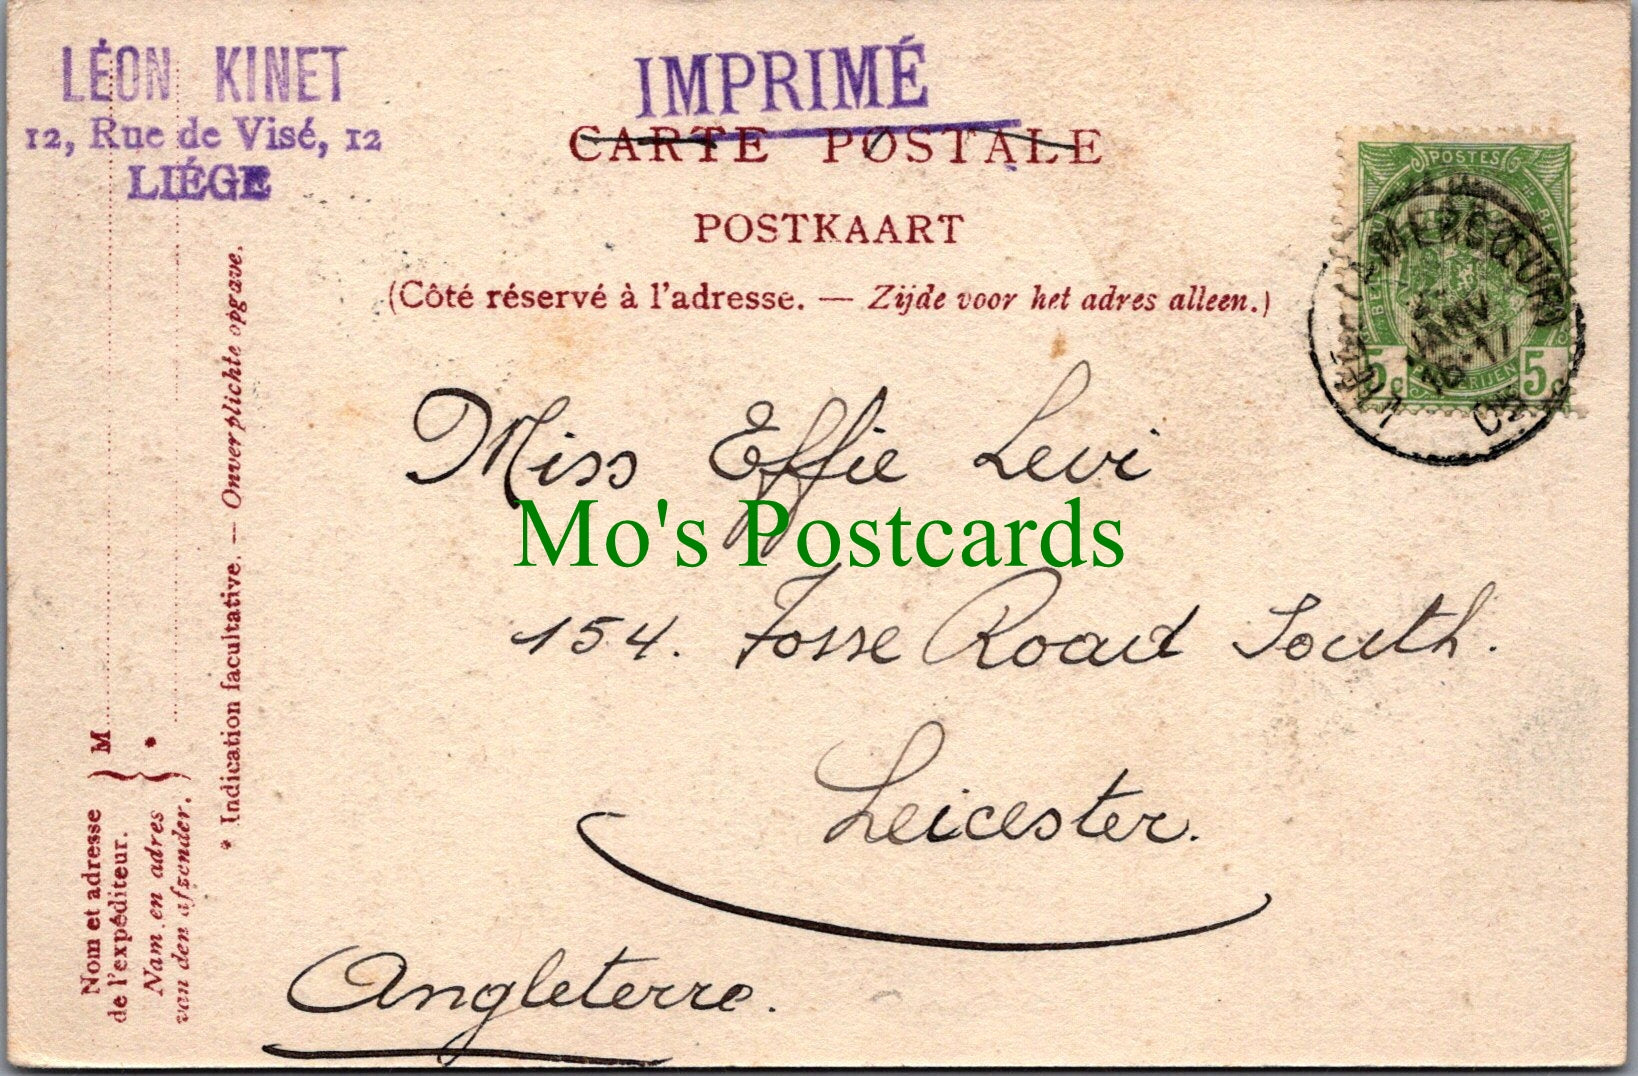 LÉON KINET
12, Rue de Visé, 12
LIÉGE
IMPRIMÉ
CARTE POSTALE
POSTKAART
(Côté réservé à l'adresse. — Zijde voor het adres alleen.)
POSTES
5c 5c
JANV
16-17
Miss Effie Levi
Mo's Postcards
154. Fosse Road South.
Leicester.
Angleterre.
Nom et adresse
de l'expéditeur.
Nam en adres
van den afzender.
M
*
* Indication facultative. — Onverplichte opgave.